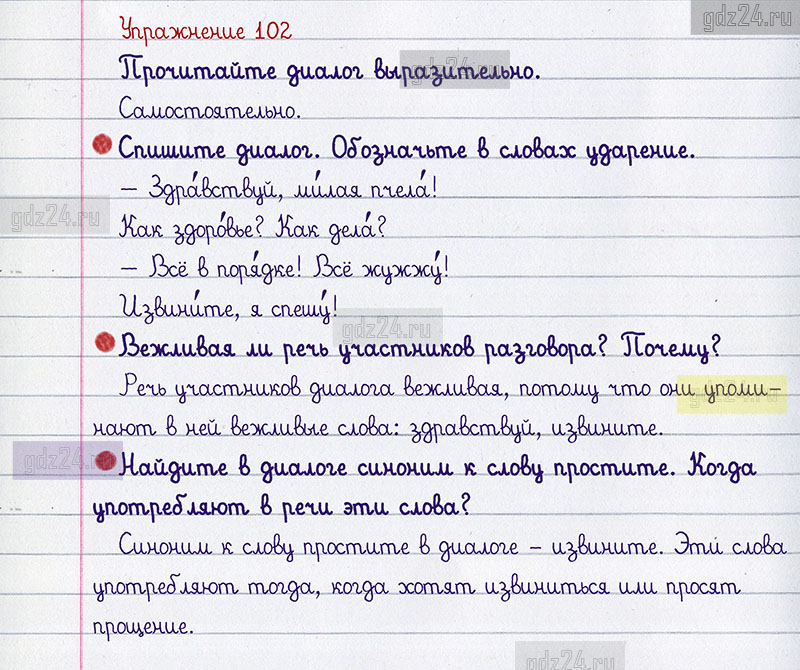 gdz24.ru
Упражнение 102
Прочитайте диалог выразительно.
gdz24.ru
Самостоятельно.
Спишите диалог. Обозначьте в словах ударение.
– Здра́вствуй, ми́лая пчела́!
gdz24.ru
Как здоро́вье? Как дела́?
– Всё в поря́дке! Всё жужжу́!
Извини́те, я спешу́!
gdz24.ru
Вежливая ли речь участников разговора? Почему?
Речь участников диалога вежливая, потому что они упоми-
gdz24.ru
нают в ней вежливые слова: здравствуй, извините.
gdz24.ru
Найдите в диалоге синоним к слову простите. Когда
употребляют в речи эти слова?
Синоним к слову простите в диалоге – извините. Эти слова
употребляют тогда, когда хотят извиниться или просят
прощение.
gdz24.ru